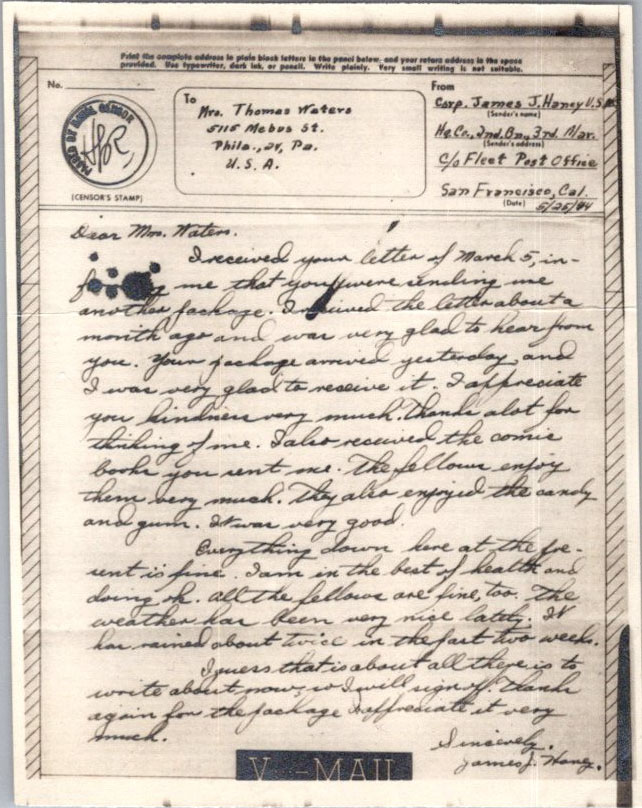 Print the complete address in plain block letters in the panel below, and your return address in the space
provided. Use typewriter, dark ink, or pencil. Write plainly. Very small writing is not suitable.
No.
PASSED BY NAVAL CENSOR
(CENSOR'S STAMP)
To
Mrs. Thomas Waters
5115 Mebus St.
Phila., 24, Pa.
U.S.A.
From
Corp. James J. Haney U.S.M
(Sender's name)
Hq. Co., 2nd. Bn., 3rd. Mar.
(Sender's address)
C/o Fleet Post Office
San Francisco, Cal.
(Date) 5/25/44
Dear Mrs. Waters.
I received your letter of March 5, in-
me that you were sending me
another package. I received the letter about a
month ago and was very glad to hear from
you. Your package arrived yesterday, and
I was very glad to receive it. I appreciate
you kindness very much. Thanks alot for
thinking of me. I also received the comic
books you sent me. The fellows enjoy
them very much. They also enjoyed the candy
and gum. It was very good.
Everything down here at the pre-
sent is fine. I am in the best of health and
doing ok. All the fellows are fine, too. The
weather has been very nice lately. It
has rained about twice in the past two weeks.
I guess that is about all there is to
write about now, so I will sign off. Thanks
again for the package I appreciate it very
much.
Sincerely,
James J. Haney.
V···-MAIL